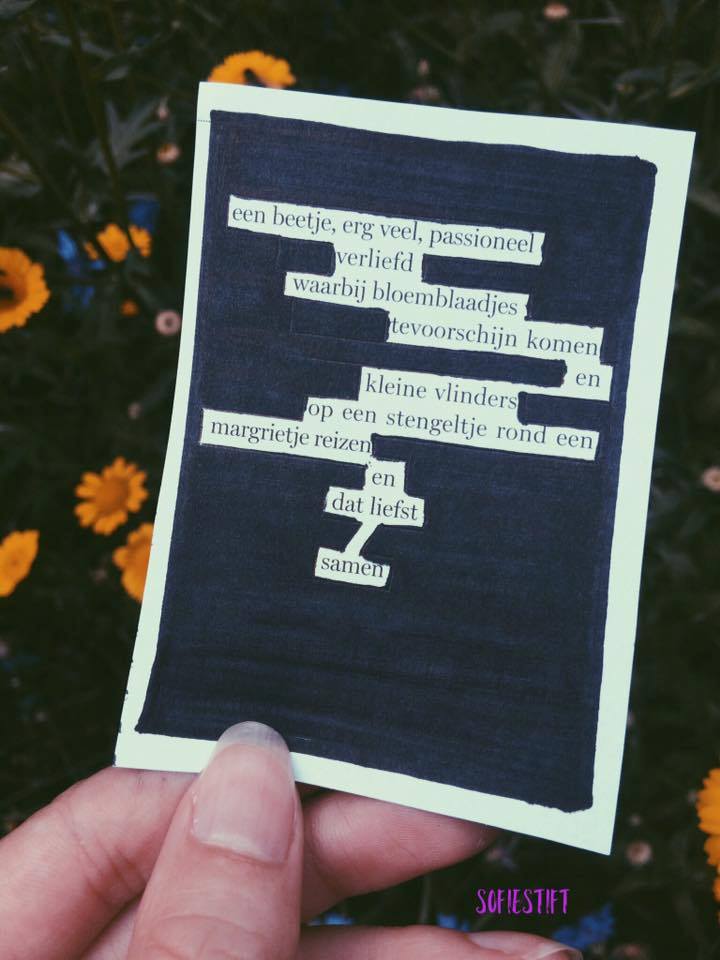 een beetje, erg veel, passioneel
verliefd
waarbij bloemblaadjes
tevoorschijn komen
en
kleine vlinders
op een stengeltje rond een
margrietje reizen
en
dat liefst
samen
SOFIESTIFT